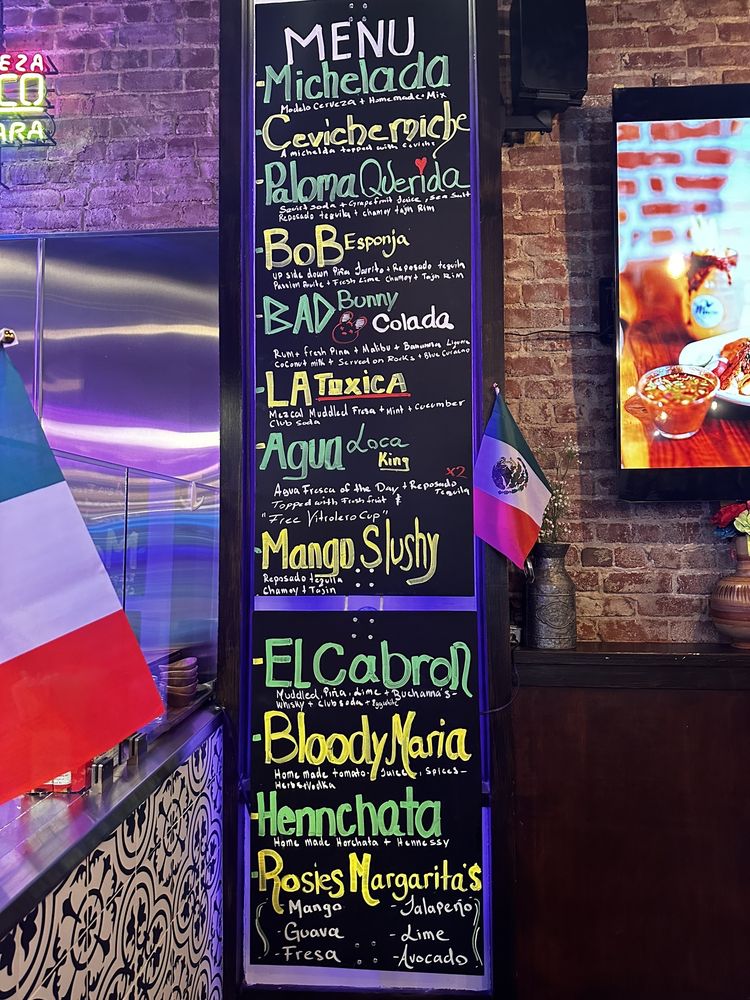 EZA
CO
ARA
MENU
Michelada
Modelo Cerveza + Homemade Mix
Cevichemiche
A michelda topped with Ceviche
Paloma Querida
Squirt soda + Grapefruit Juice, Sea Salt
Reposado tequila + chamoy tajin Rim
BoB Esponja
UP side down Piña Jarrito + Reposado tequila
Passion fruite + Fresh Lime Chamoy + Tajin Rim
BAD Bunny
Colada
Rum + fresh Pina + Malibu + Bananna Liquor
Coconut milk + Served on Rocks + Blue Curacao
LA Toxica
Mezcal Muddled Fresa + Mint + Cucumber
Club soda
Agua Loca
King
x2
Agua Fresca of the Day + Reposado
Tequila
Topped with Fresh fruit &
"Free Vitrolero Cup"
Mango Slushy
Reposado tequila
Chamoy + Tajin
EL Cabron
Muddled, Piña, Lime + Buchanna's-
Whisky + Club soda +
Bloody Maria
Home made tomato- Juice, Spices-
Herbs+Vodka
Hennchata
Home made Horchata + Hennessy
Rosies Margarita's
- Mango
- Jalapeño
- Guava
- Lime
- Fresa
- Avocado